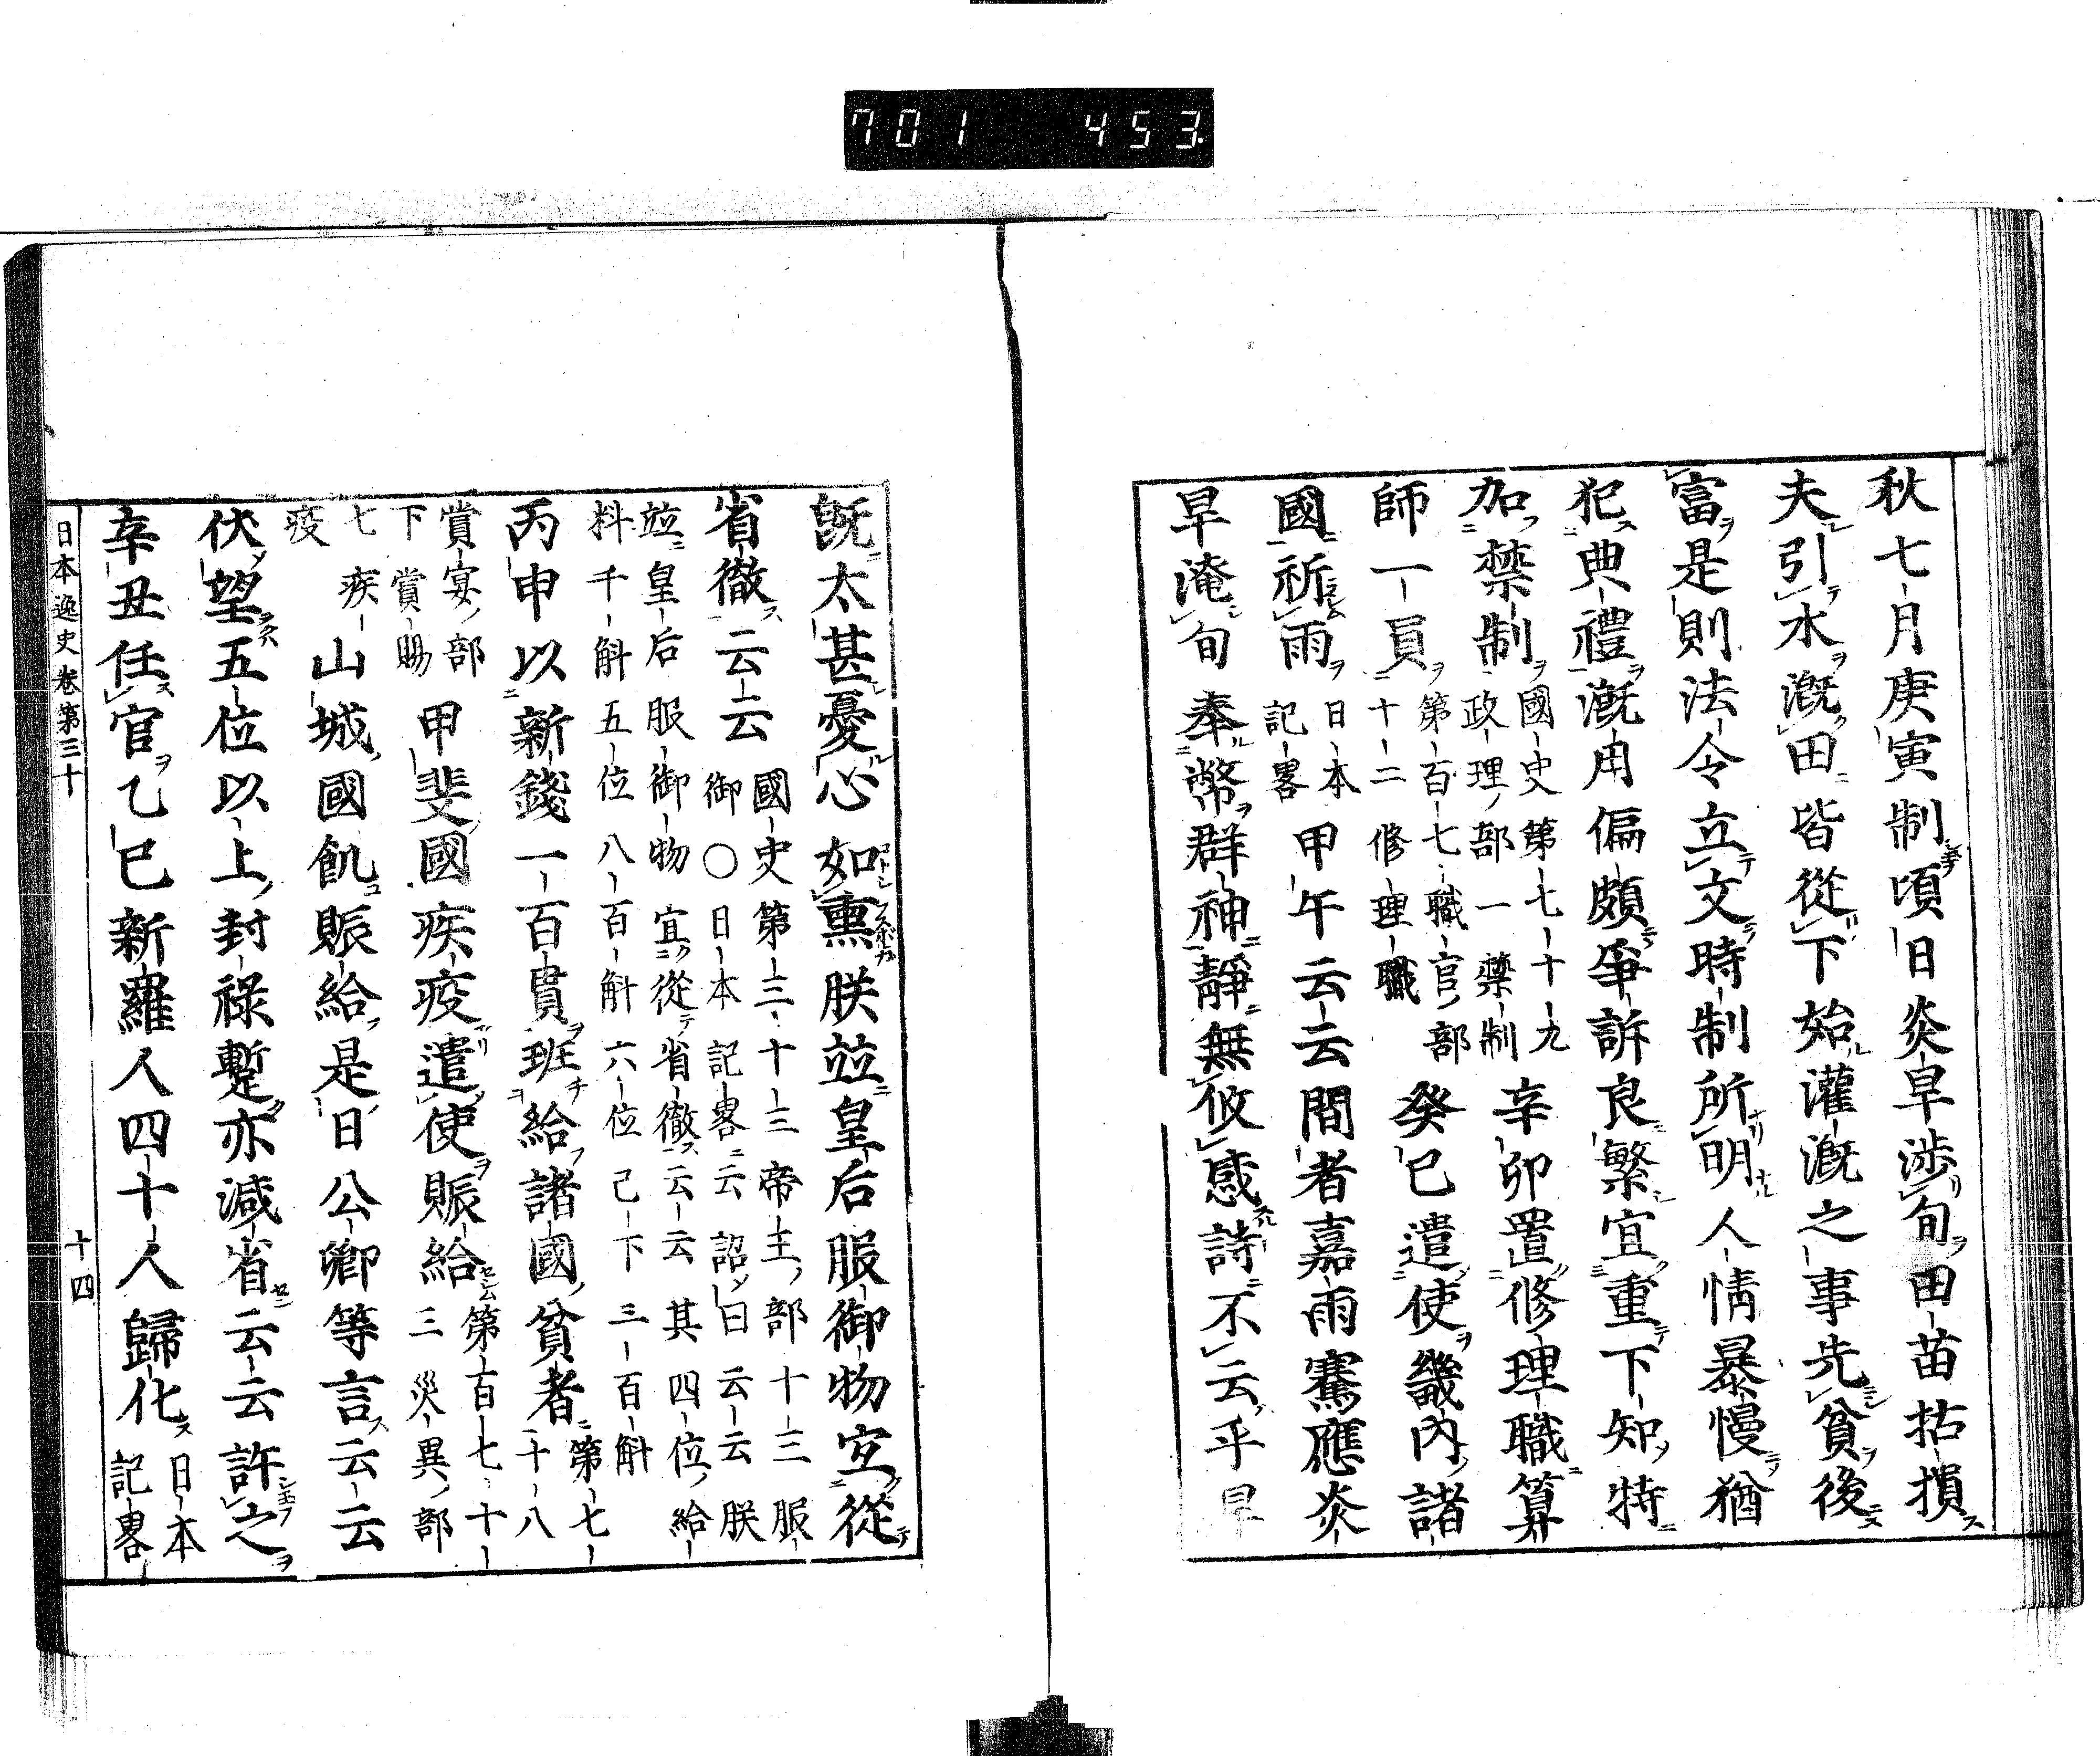 701 453
秋七月庚寅制頃日炎旱渉旬田苗拈損
夫引水漑田皆從下始灌漑之事先貧後
富是則法令立文時制所明人情暴慢猶
犯典禮漑用偏頗爭訴良繁宜重下知特
加禁制國史第七十九
政理部一禁制辛卯置修理職算
師一員第百七職官部
十二修理職癸巳遣使畿內諸
國祈雨日本
記畧甲午云云間者嘉雨騫應炎
旱淹旬奉幣群神靜無攸感詩不云乎旱
既太甚憂心如熏朕竝皇后服御物宜從
省徹云云國史第三十三帝王部十三服
御〇日本記畧云詔曰云云朕
竝皇后服御物宜從省徹云云其四位給
料千斛五位八百斛六位己下三百斛
丙申以新錢一百貫班給諸國貧者第七
十八
賞宴部
下賞賜甲斐國疾疫遣使賑給第百七十
三災異部
七疾
疫山城國飢賑給是日公卿等言云云
伏望五位以上封祿蹔亦減省云云許之
辛丑任官乙巳新羅人四十人歸化日本
記畧
日本逸史卷第三十 十四